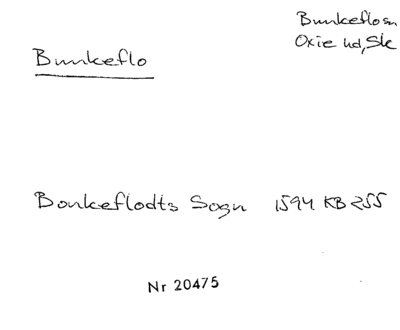 Bunkeflo
Bunkeflo sn
Oxie hd, Sk
Bonkeflodts Sogn 1594 KB 255
Nr 20475